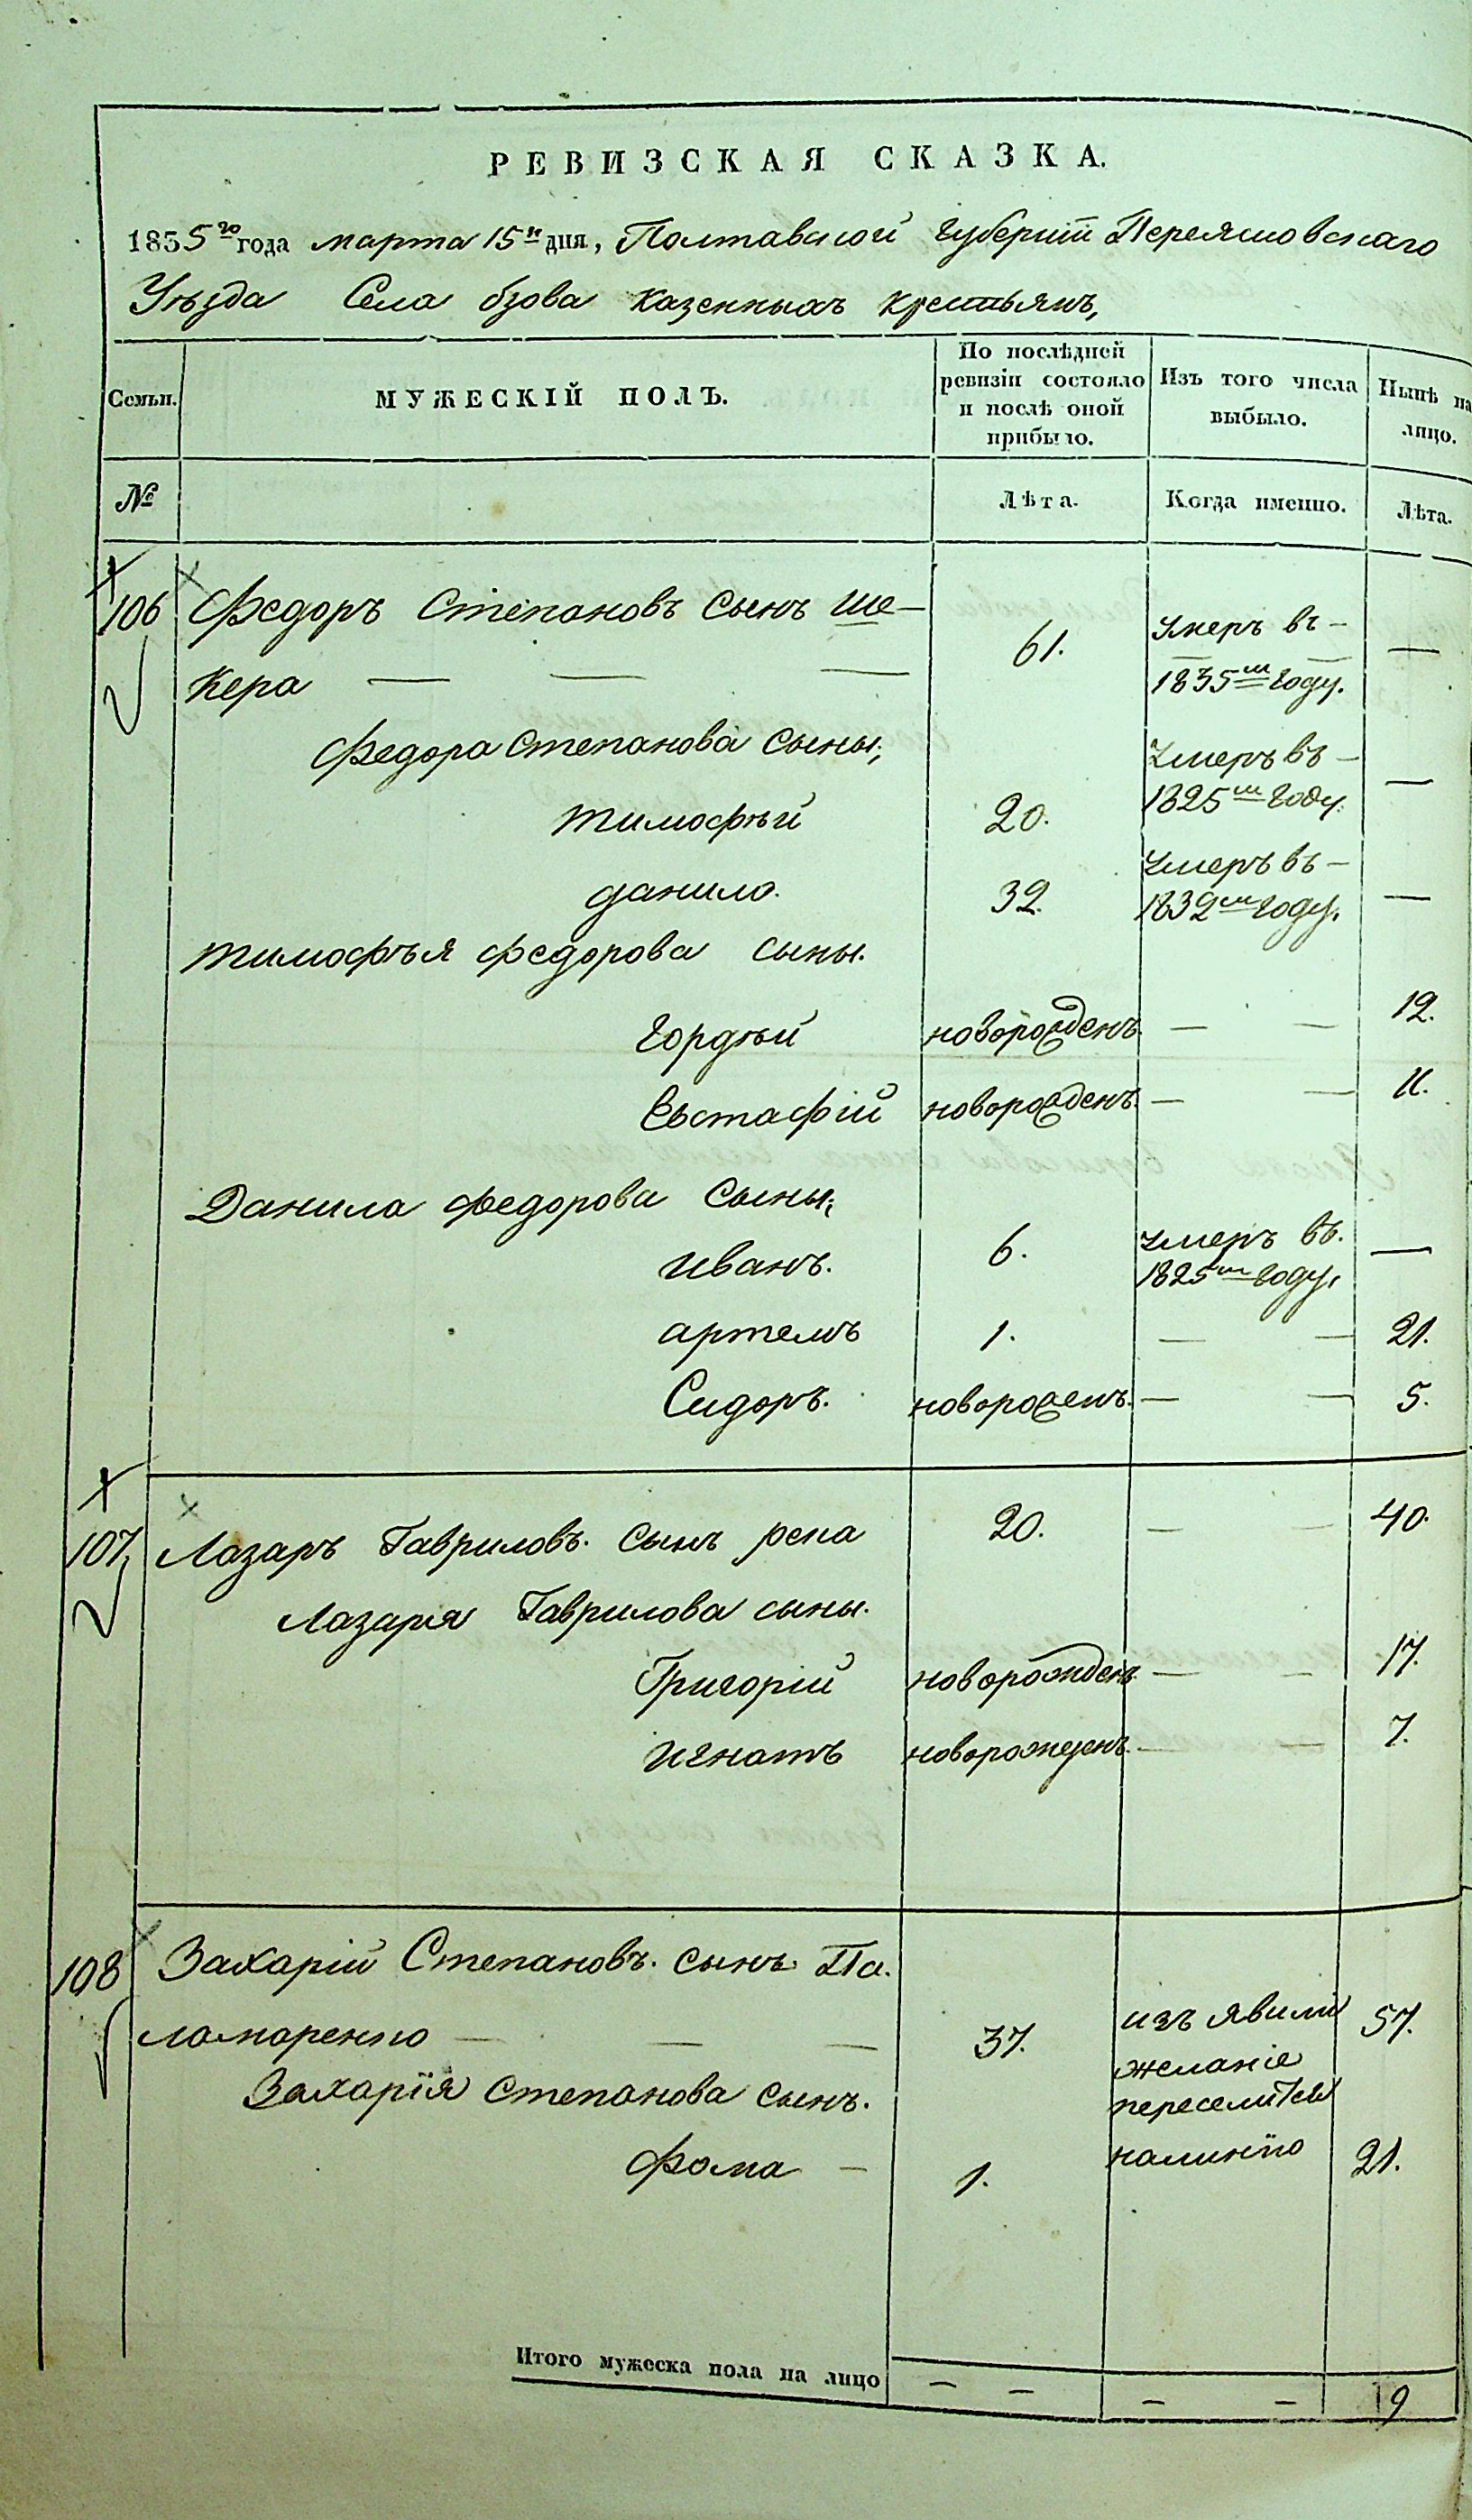 РЕВИЗСКАЯ СКАЗКА.
1835го года марта 15н дня, Полтавской губерніи Переясловскаго
Уѣзда Села бзова казенныхъ крестьянъ,
Семьи. МУЖЕСКІЙ ПОЛЪ. По послѣдней ревизіи состояло и послѣ оной прибыло. Изъ того числа выбыло. Нынѣ на лицо.
№ Лѣта. Когда именно. Лѣта.
106 Федоръ Степановъ сынъ ше– 61. Умеръ въ –
кера — — — 1835м году. —
Федора Степанова сыны; Умеръ въ –
тимофѣй 20. 1825м году. —
данило. 32. Умеръ въ – 1832м году. —
тимофѣя федорова сыны.
Гордѣй новорожденъ. — — 12.
Евстафій новорожденъ. — — 11.
Данила федорова сыны;
иванъ. 6. Умеръ въ. 1825м году. —
артемъ 1. — — 21.
Сидоръ. новорожденъ. — — 5.
107. Лазаръ Гавриловъ. сынъ репа 20. — — 40.
Лазаря Гаврилова сыны.
Григорій новорожденъ — — 17.
игнатъ новорожденъ. — — 7.
108 Захарій Степановъ. сынъ Па.
ламаренко — — — 37. изъ явилъ желаніе 57.
Захарія степанова сынъ. переселится
фома — 1. налинію 21.
Итого мужеска пола на лицо — — — — 9